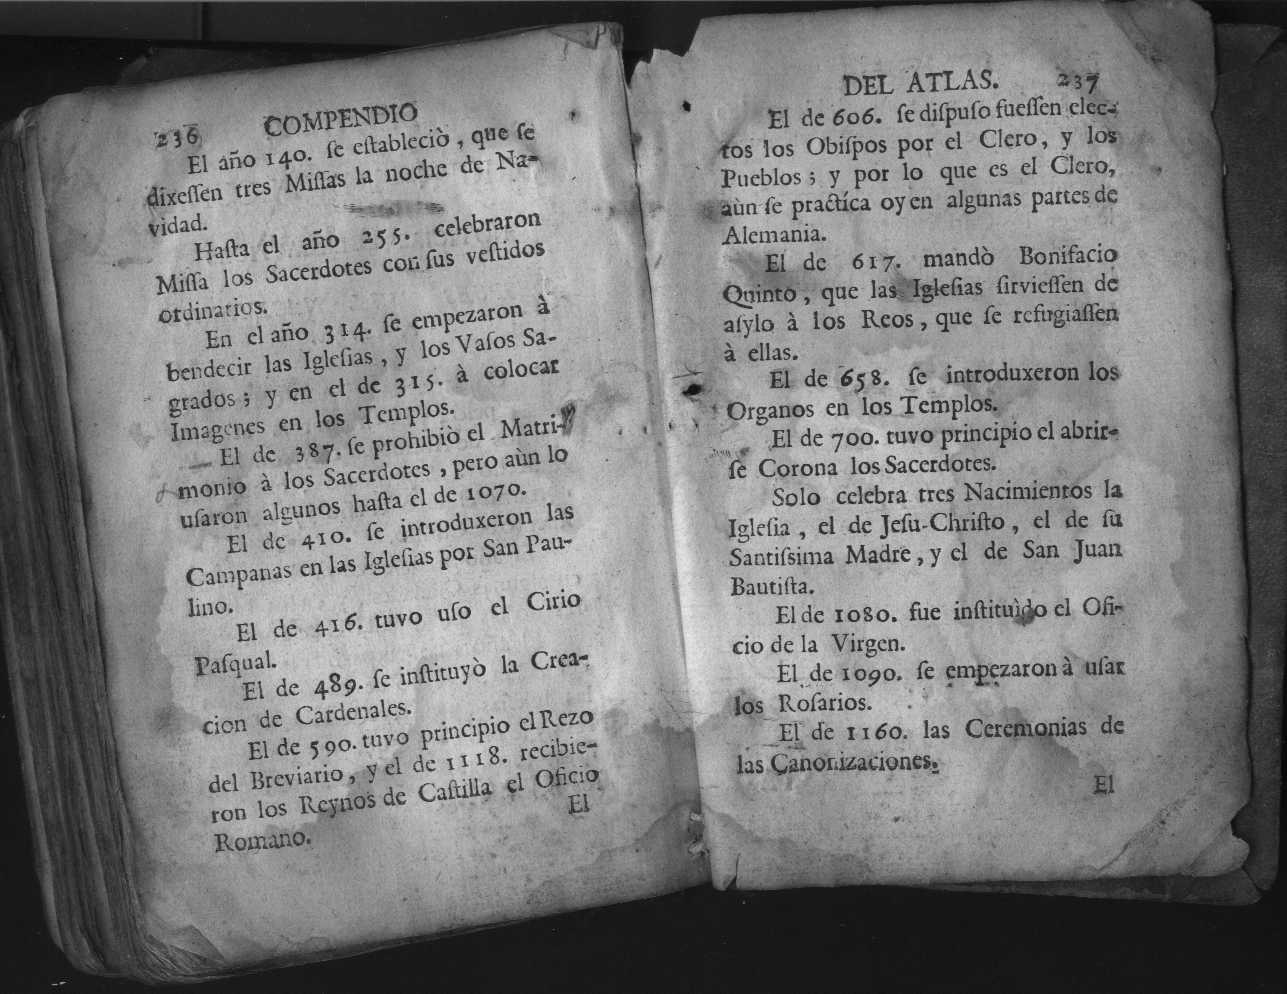 236 COMPENDIO
El año 140. ſe eſtableciò, que ſe
dixeſſen tres Miſſas la noche de Na-
vidad.
Haſta el año 255. celebraron
Miſſa los Sacerdotes con ſus veſtidos
ordinarios.
En el año 314. ſe empezaron à
bendecir las Igleſias, y los Vaſos Sa-
grados; y en el de 315. à colocar
Imagenes en los Templos.
El de 387. ſe prohibiò el Matri-
monio à los Sacerdotes, pero aùn lo
uſaron algunos haſta el de 1070.
El de 410. ſe introduxeron las
Campanas en las Igleſias por San Pau-
lino.
El de 416. tuvo uſo el Cirio
Paſqual.
El de 489. ſe inſtituyò la Crea-
cion de Cardenales.
El de 590. tuvo principio el Rezo
del Breviario, y el de 1118. recibie-
ron los Reynos de Caſtilla el Oficio
Romano.
El
DEL ATLAS. 237
El de 606. ſe diſpuſo fueſſen elec-
tos los Obiſpos por el Clero, y los
Pueblos; y por lo que es el Clero,
aùn ſe practíca oy en algunas partes de
Alemania.
El de 617. mandò Bonifacio
Quinto, que las Igleſias ſirvieſſen de
aſylo à los Reos, que ſe refugiaſſen
à ellas.
El de 658. ſe introduxeron los
Organos en los Templos.
El de 700. tuvo principio el abrir-
ſe Corona los Sacerdotes.
Solo celebra tres Nacimientos la
Igleſia, el de Jeſu-Chriſto, el de ſu
Santiſsima Madre, y el de San Juan
Bautiſta.
El de 1080. fue inſtituìdo el Ofi-
cio de la Virgen.
El de 1090. ſe empezaron à uſar
los Roſarios.
El de 1160. las Ceremonias de
las Canonizaciones.
El